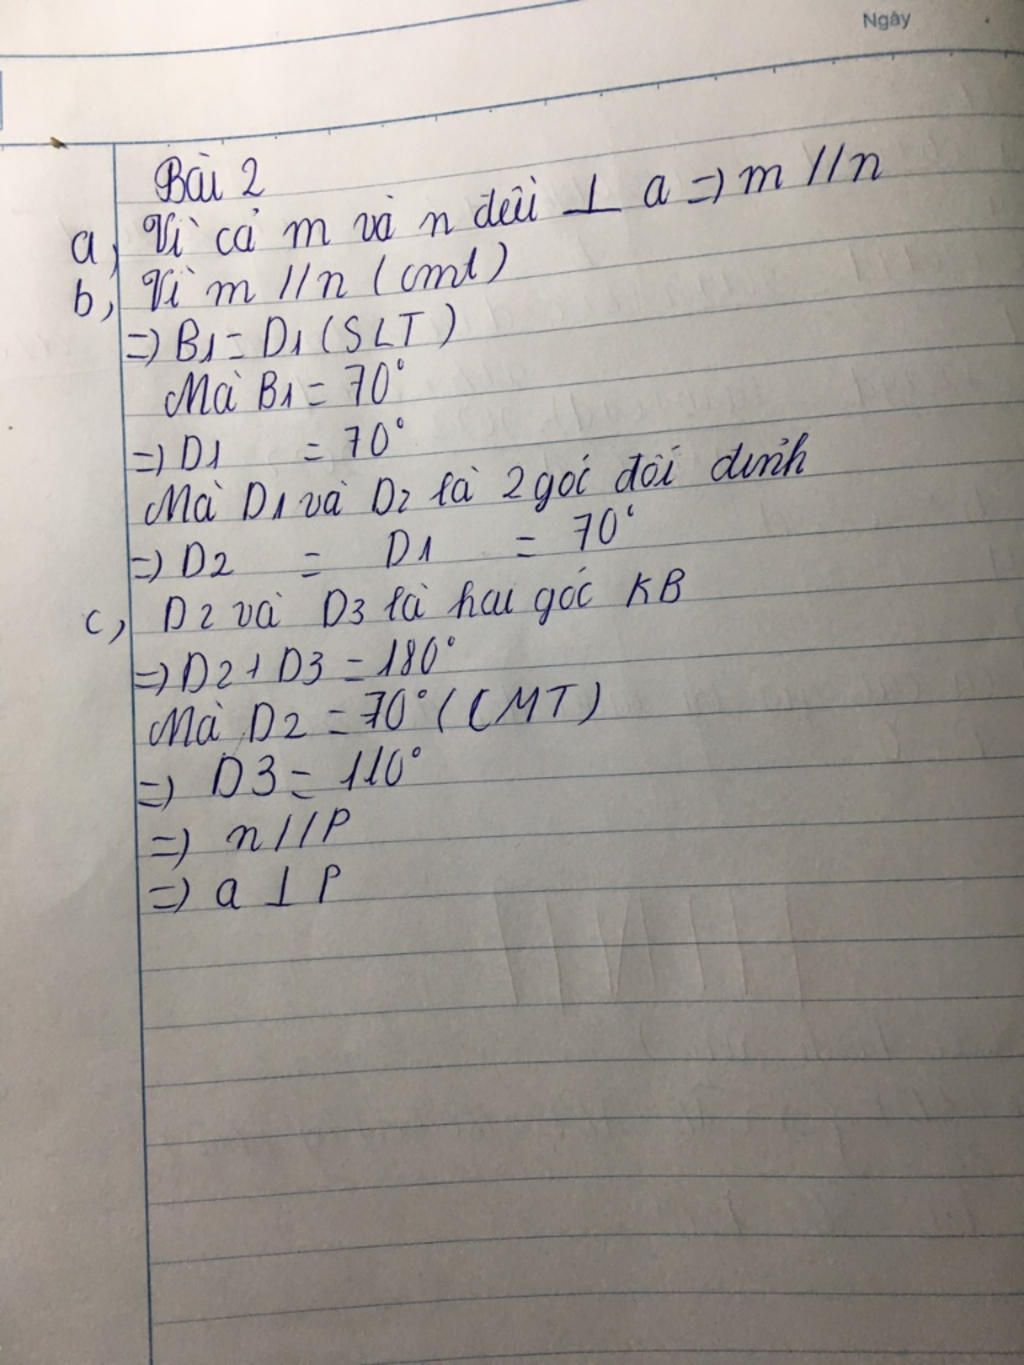 Ngày
Bài 2
a, Vì cả m và n đều ⊥ a => m // n
b, Vì m // n (cmt)
=> B1 = D1 (SLT)
Mà B1 = 70°
=> D1 = 70°
Mà D1 và D2 là 2 góc đối đỉnh
=> D2 = D1 = 70°
c, D2 và D3 là hai góc KB
=> D2 + D3 = 180°
Mà D2 = 70° (CMT)
=> D3 = 110°
=> n // P
=> a ⊥ P